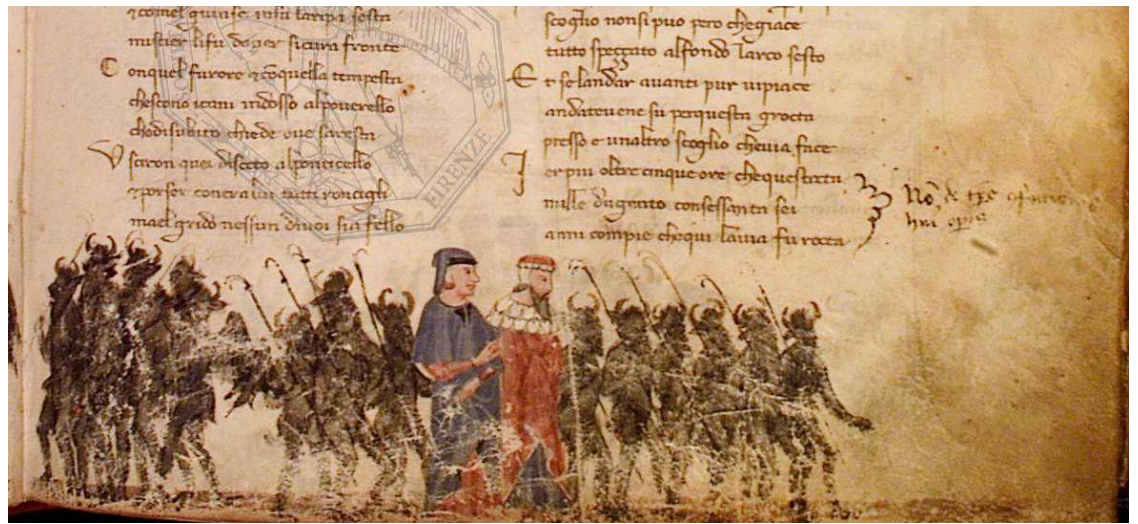 e comel giunse insu laripa sesta
mistier lifu daver sicura fronte
Conquel furore e coquella tempesta
chescono icani indosso alpoverello
chedisubito chiede ove saresta
Usciron quei disocto alponticello
e porser contralui tutti ronciqli
mael grido nessun divoi sia fello
scoglio nonsi puo pero chegiace
tutto speççato alfondo larco sesto
Et selandar avanti pur vipiace
andatevene su perquesta grocta
presso e unaltro scoglio chevia face
Ier piu oltre cinque ore chequestotta
mille dugento consessanta sei
anni compie chequi lavia fu rocta
No de
FIRENZE